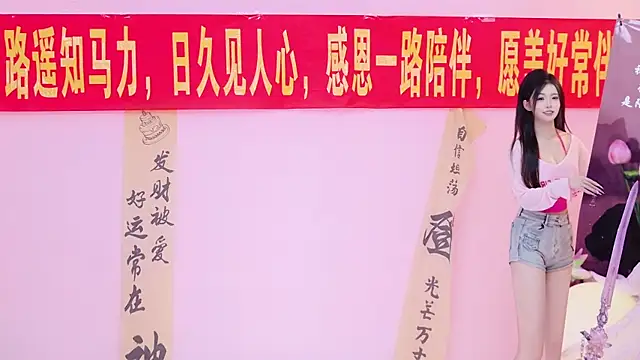 路遥知马力，日久见人心，感恩一路陪伴，愿美好常伴
发财被爱
好运常在
神
自信坦荡
登
光芒万丈